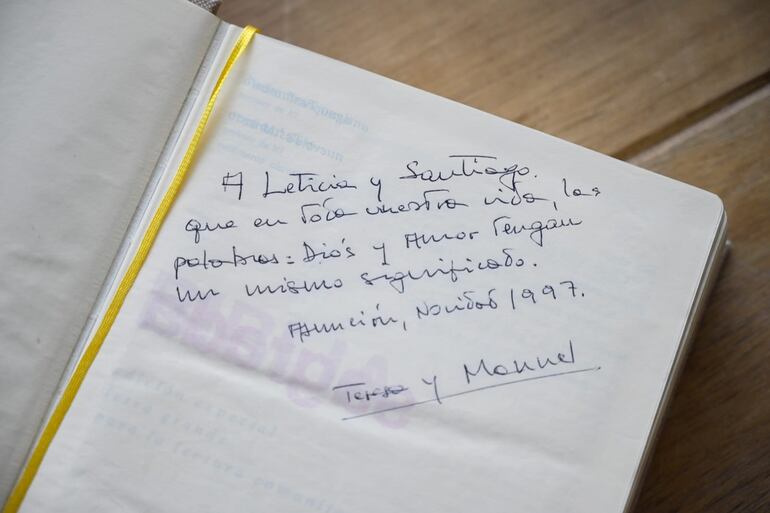 A Leticia y Santiago.
que en toda vuestra vida, las
palabras = Diós y Amor tengan
un mismo significado.
Asunción, Navidad 1997.
Teresa y Manuel